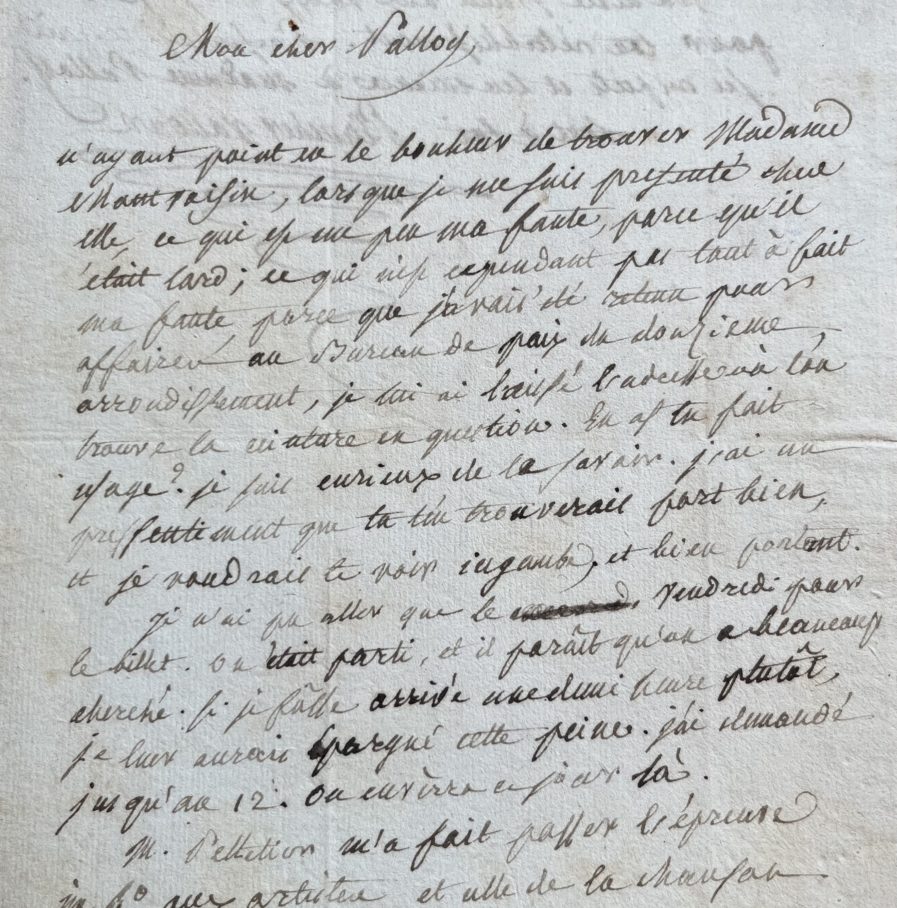 Mon cher Palloy,
n'ayant point eu le bonheur de trouver Madame
Montraisin, lorsque je me suis presenté chez
elle, ce qui est un peu ma faute, parce qu'il
était tard; ce qui n'est cependant pas tout à fait
ma faute parce que j'avais été retenu pour
affaire au Bureau de paix du douzieme
arrondissement, je lui ai laissé l'adresse où l'on
trouve la ceinture en question. En as tu fait
usage? je suis curieux de le savoir. j'ai un
pressentiment que tu t'en trouverais fort bien,
et je voudrais te voir ingambe, et bien portant.
je n'ai pu aller que le vendredi pour
le billet. On était parti, et il paroît qu'on a beaucoup
cherché. Si je fûsse arrivé une demi heure plutôt,
je leur aurais épargné cette peine. j'ai demandé
jusqu'au 12. On enverra ce jour là.
M. Pelletier m'a fait passer l'épreuve
aux artistes et celle de la chanson